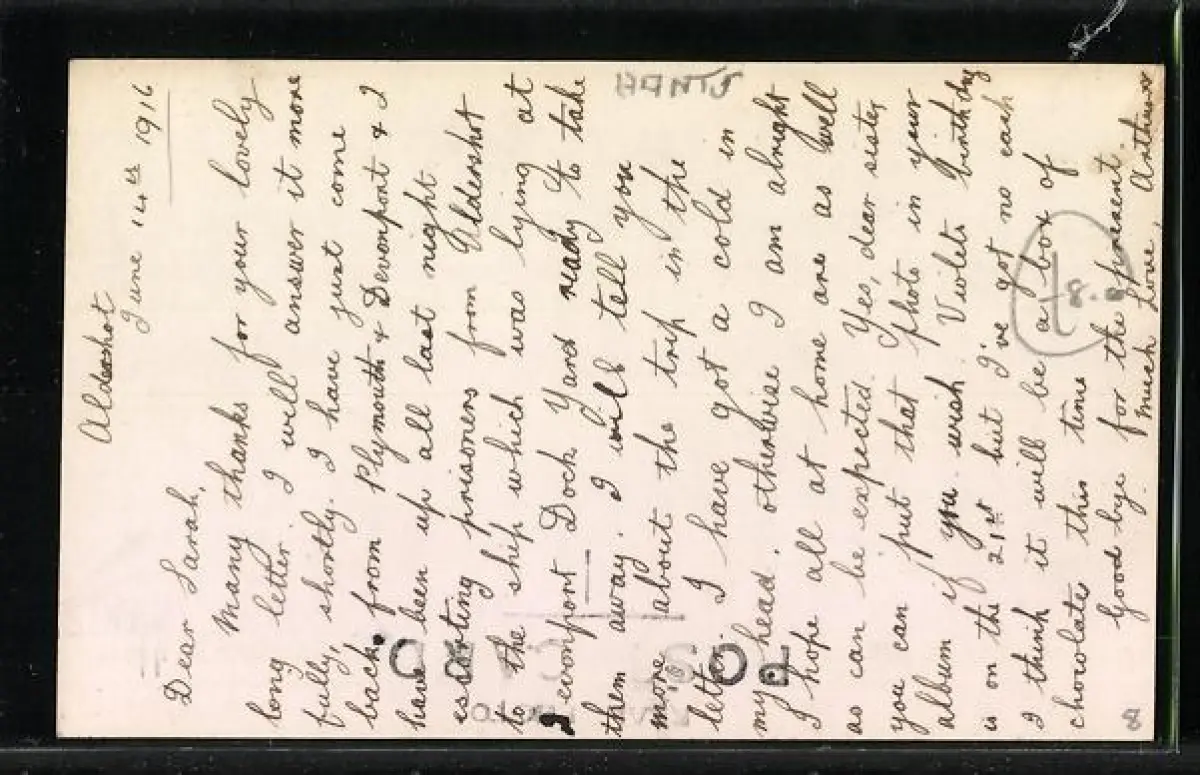 Aldershot
June 14th 1916
Dear Sarah,
Many thanks for your lovely
long letter. I will answer it more
fully, shortly. I have just come
back from Plymouth & Devonport & I
have been up all last night
escorting prisoners from Aldershot
to the ship which was lying at
Devonport Dock Yard ready to take
them away. I will tell you
more about the trip in the
letter. I have got a cold in
my head, otherwise I am alright
I hope all at home are as well
as can be expected. Yes, dear sister,
you can put that photo in your
album if you wish. Violets birthday
is on the 21st but I've got no cash
I think it will be a box of
chocolates this time
Good-bye for the present.
Much Love, Arthur
HANTS